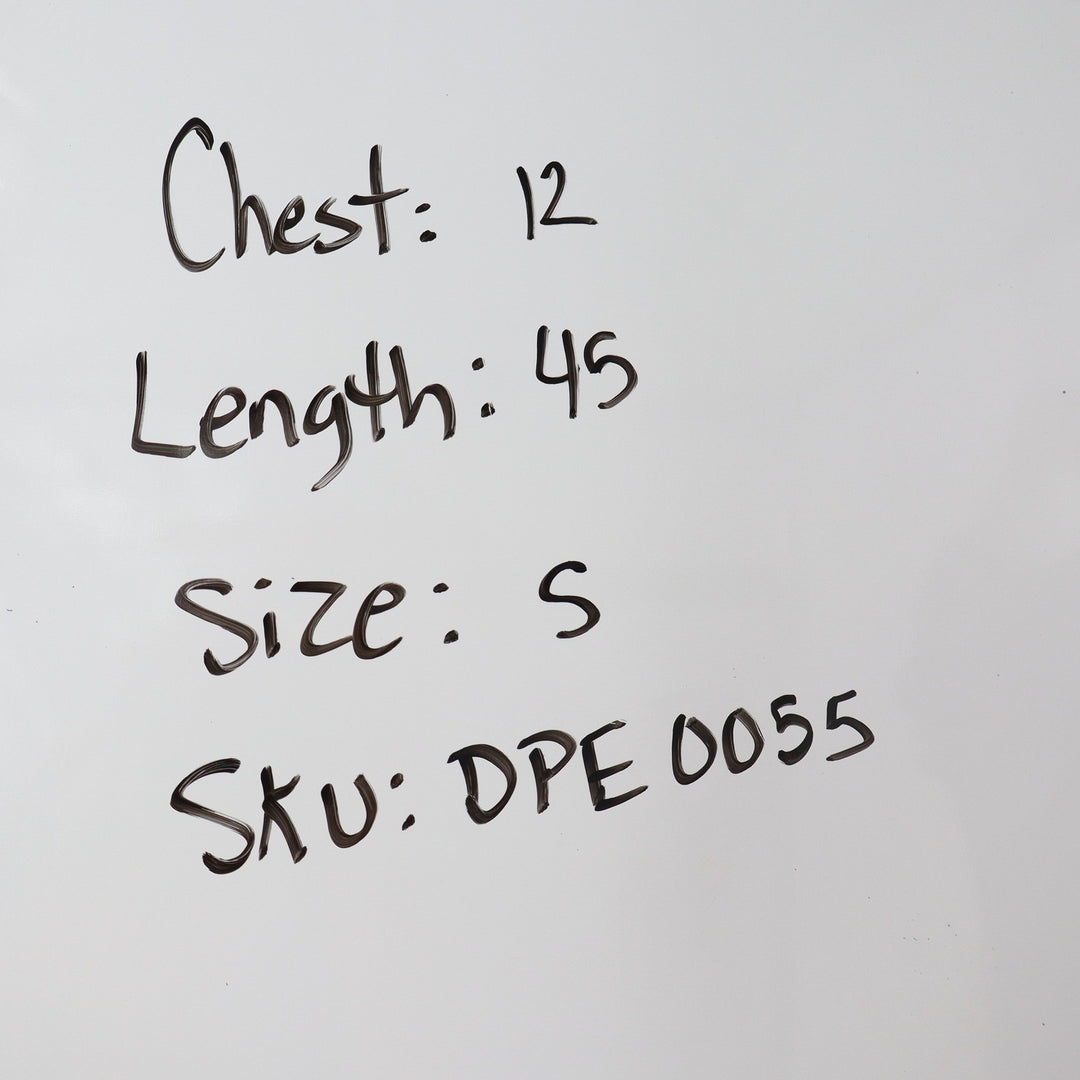 Chest: 12
Length: 45
Size: S
SKU: DPE 0055